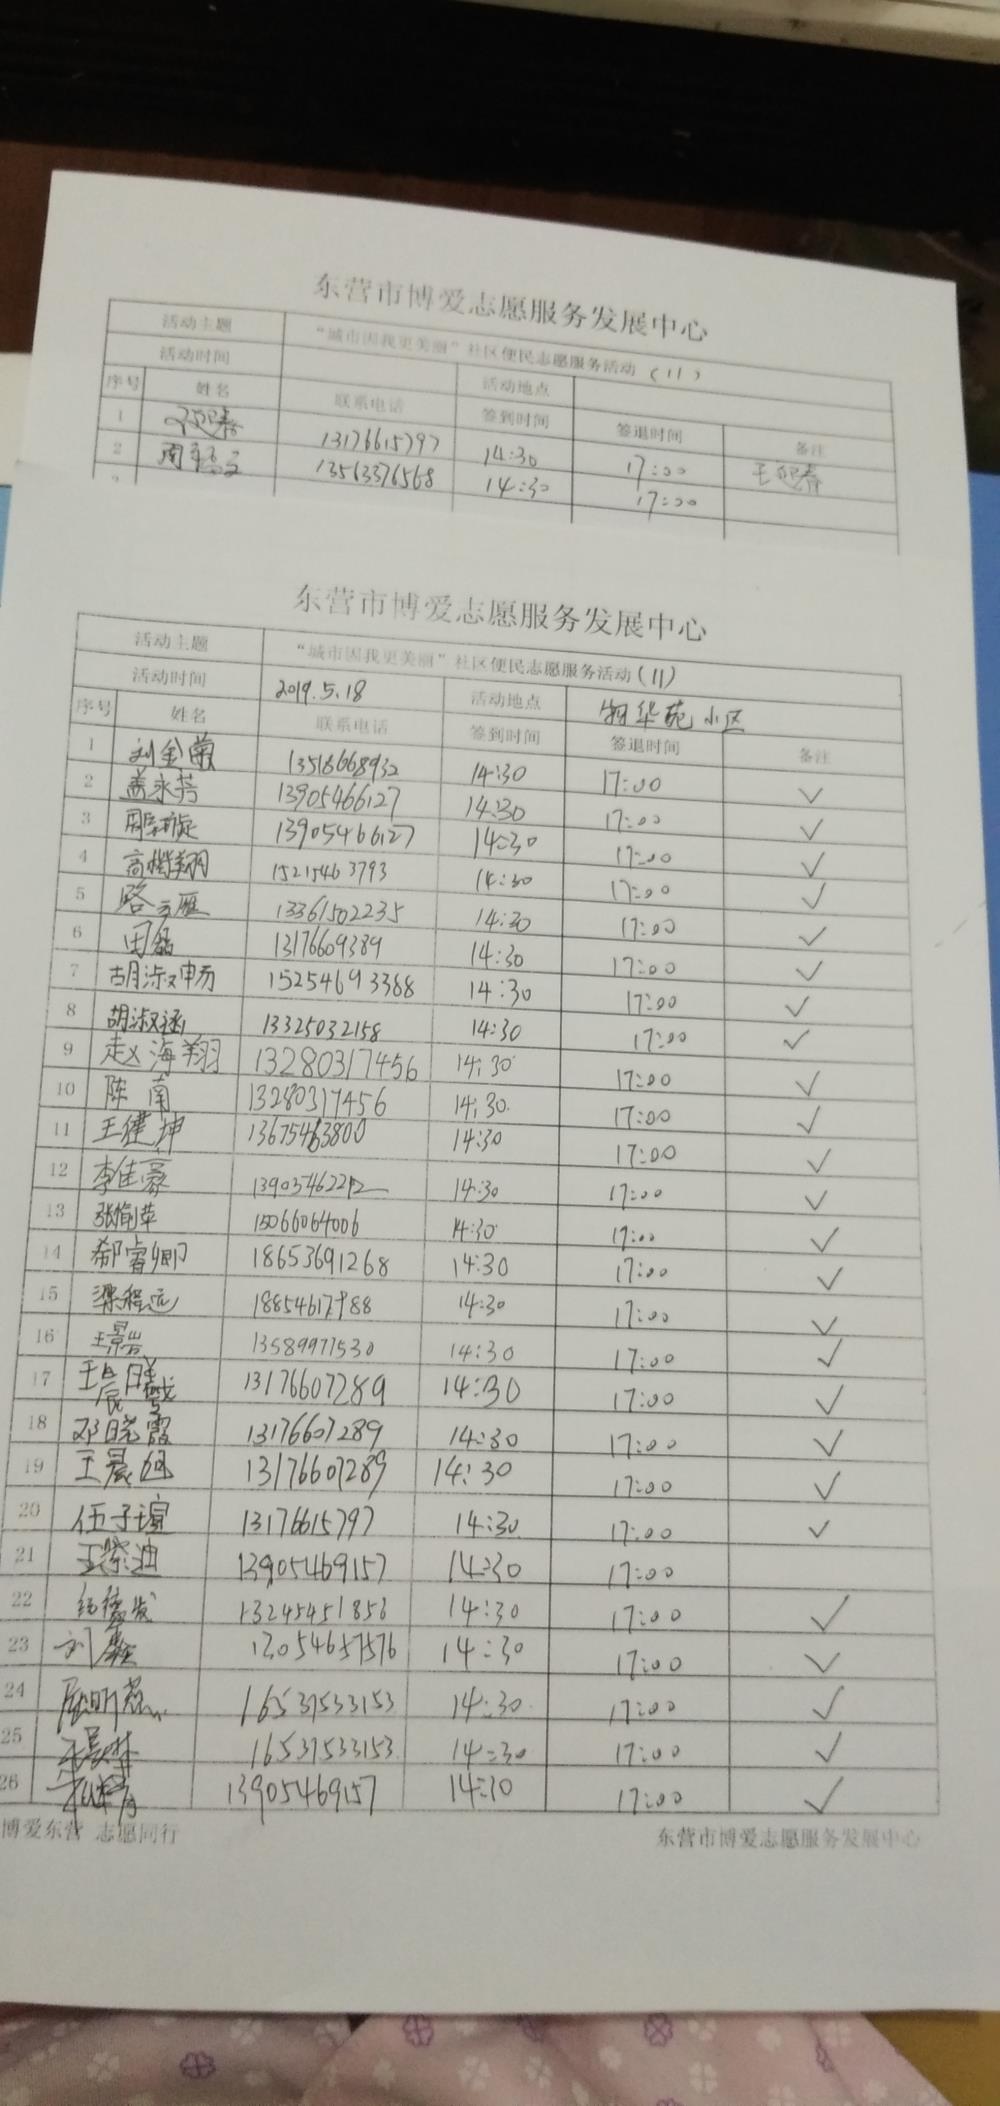 东营市博爱志愿服务发展中心
活动主题 “城市因我更美丽”社区便民志愿服务活动 (11)
活动时间 活动地点
序号 姓名 联系电话 签到时间 签退时间 备注
1 13176615797 14:30 17:00 王迎春
2 13563376568 14:30 17:00
东营市博爱志愿服务发展中心
活动主题 “城市因我更美丽”社区便民志愿服务活动(11)
活动时间 2019.5.18 活动地点 物华苑小区
序号 姓名 联系电话 签到时间 签退时间 备注
1 刘金菊 13518668932 14:30 17:00 ✓
2 盖永芳 13905466127 14:30 17:00 ✓
3 13905466127 14:30 17:00 ✓
4 高楷翔 15215463793 14:30 17:00 ✓
5 路云雁 13361502235 14:30 17:00 ✓
6 田磊 13176609389 14:30 17:00 ✓
7 胡淑畅 15254693368 14:30 17:00 ✓
8 胡淑涵 13325032158 14:30 17:00 ✓
9 赵海翔 13280317456 14:30 17:00 ✓
10 陈南 13280317456 14:30 17:00 ✓
11 王健坤 13675463800 14:30 17:00 ✓
12 李佳豪 14:30 17:00 ✓
13 15066064006 14:30 17:00 ✓
14 郗睿卿 18653691268 14:30 17:00 ✓
15 梁程远 14:30 17:00 ✓
16 王景岩 13589977530 14:30 17:00 ✓
17 王晨曦 13176607289 14:30 17:00 ✓
18 邓晓霞 13176607289 14:30 17:00 ✓
19 王晨旭 13176607289 14:30 17:00 ✓
20 伍子瑄 13176615797 14:30 17:00 ✓
21 13905469157 14:30 17:00
22 13245451856 14:30 17:00 ✓
23 13054657576 14:30 17:00 ✓
24 16537533153 14:30 17:00 ✓
25 16537533153 14:30 17:00 ✓
26 13905469157 14:30 17:00 ✓
博爱东营 志愿同行 东营市博爱志愿服务发展中心